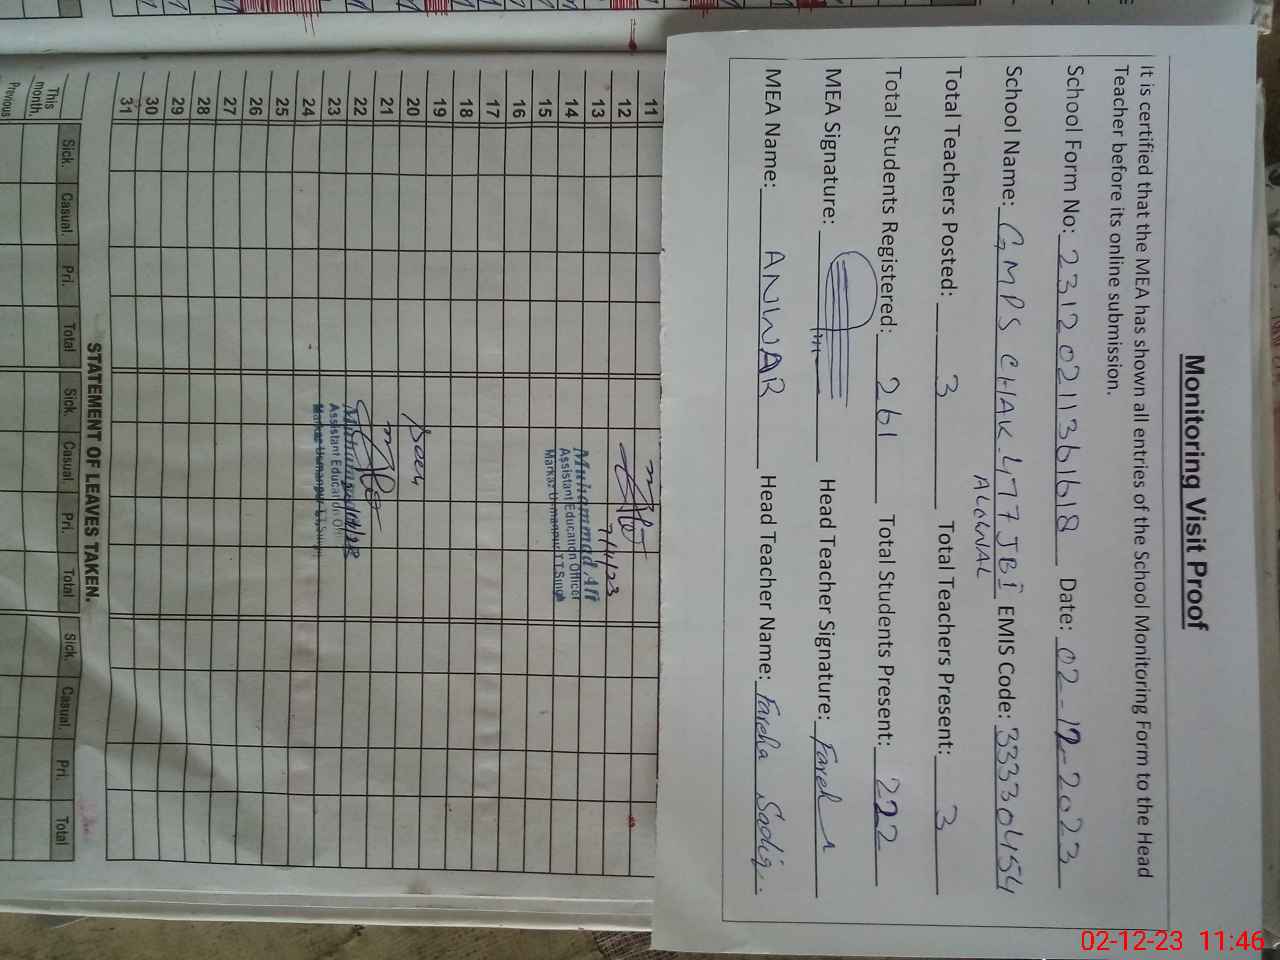 Monitoring Visit Proof
It is certified that the MEA has shown all entries of the School Monitoring Form to the Head
Teacher before its online submission.
School Form No: 23120211361618 Date: 02-12-2023
School Name: GMPS CHAK.477 JBI EMIS Code: 33330454
ALOWAL
Total Teachers Posted: 3 Total Teachers Present: 3
Total Students Registered: 261 Total Students Present: 222
MEA Signature: Head Teacher Signature:
MEA Name: ANWAR Head Teacher Name: Fareha Sadiq
11
12
7/4/23
13
14 Muhammad
Assistant Education Officer
15
16
17
18
19
20 Seen
21
22
23 Assistant Education
24
25
26
27
28
29
30
31
STATEMENT OF LEAVES TAKEN.
Sick. Casual. Pri. Total Sick. Casual. Pri. Total Sick. Casual. Pri. Total
This
month.
Previous
02-12-23 11:46